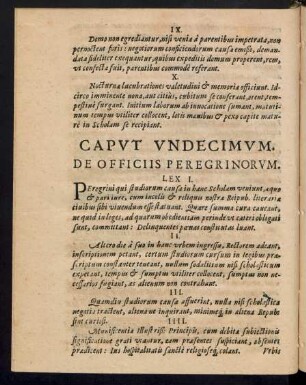 IX.
Domo non egrediantur, nisi venia à parentibus impetrata, non
pernoctent foris: negotiorum conficiendorum causa emissi, deman-
data fideliter exequantur, quibus expeditis domum properent, rem,
ut confecta fuit, parentibus commodè referant.
X.
Nocturnæ lucubrationes valetudini & memoriæ officiunt. Id-
circo imminente nona, aut citiùs, cubitum se conferant, orent, tem-
pestivi surgant. Initium laborum ab invocatione sumant, matuti-
num tempus utiliter collocent, lotis manibus & pexo capite matu-
rè in Scholam se recipiant.
CAPVT VNDECIMVM.
DE OFFICIIS PEREGRINORVM.
LEX I.
Peregrini qui studiorum causa in hanc Scholam veniunt, æquo
& pari jure, cum incolis & reliquis nostræ Reipub. literariæ
civibus sibi vivendum esse statuant. Quare summa cura caveant,
ne quid in leges, ad quarum obedientiam perinde ut cæteri obligati
sunt, committant: Delinquentes pœnas constitutas luant.
II.
Altero die à suo in hanc urbem ingressu, Rectorem adeant,
inscriptionem petant, certum studiorum cursum in legibus præ-
scriptum constanter teneant, nullum sodalitium nisi scholasticum
expetant, tempus & sumptus utiliter collocent, sumptus non ne-
cessarios fugiant, æs alienum non contrahant.
III.
Quamdiu studiorum causa affuerint, nulla nisi scholastica
negotia tractent, aliena ne inquirant, minimeque in aliena Repub.
sint curiosi.
IIII.
Munificentiæ Illustriss: Principis, cum debita subjectionis
significatione grati vivant, eam præsentes suspiciant, absentes
prædicent: Ius hospitalitatis sanctè religioseque colant.
Vrbis